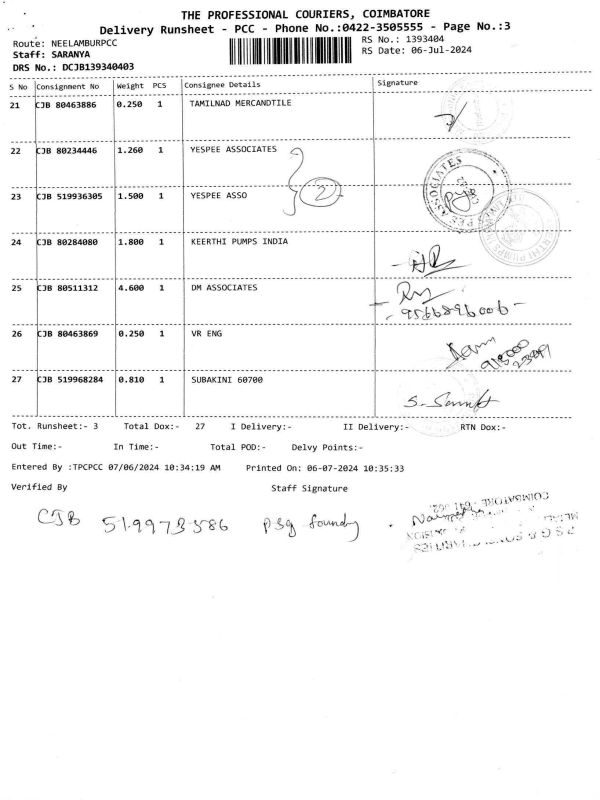 THE PROFESSIONAL COURIERS, COIMBATORE
Delivery Runsheet - PCC - Phone No.:0422-3505555 - Page No.:3
Route: NEELAMBURPCC RS No.: 1393404
Staff: SARANYA RS Date: 06-Jul-2024
DRS No.: DCJB139340403
S No Consignment No Weight PCS Consignee Details Signature
21 CJB 80463886 0.250 1 TAMILNAD MERCANDTILE
22 CJB 80234446 1.260 1 YESPEE ASSOCIATES
2
23 CJB 519936305 1.500 1 YESPEE ASSO
24 CJB 80284080 1.800 1 KEERTHI PUMPS INDIA
25 CJB 80511312 4.600 1 DM ASSOCIATES
26 CJB 80463869 0.250 1 VR ENG
27 CJB 519968284 0.810 1 SUBAKINI 60700
Tot. Runsheet:- 3 Total Dox:- 27 I Delivery:- II Delivery:- RTN Dox:-
Out Time:- In Time:- Total POD:- Delvy Points:-
Entered By :TPCPCC 07/06/2024 10:34:19 AM Printed On: 06-07-2024 10:35:33
Verified By Staff Signature
CJB 519973586 PSG foundry
COIMBATORE